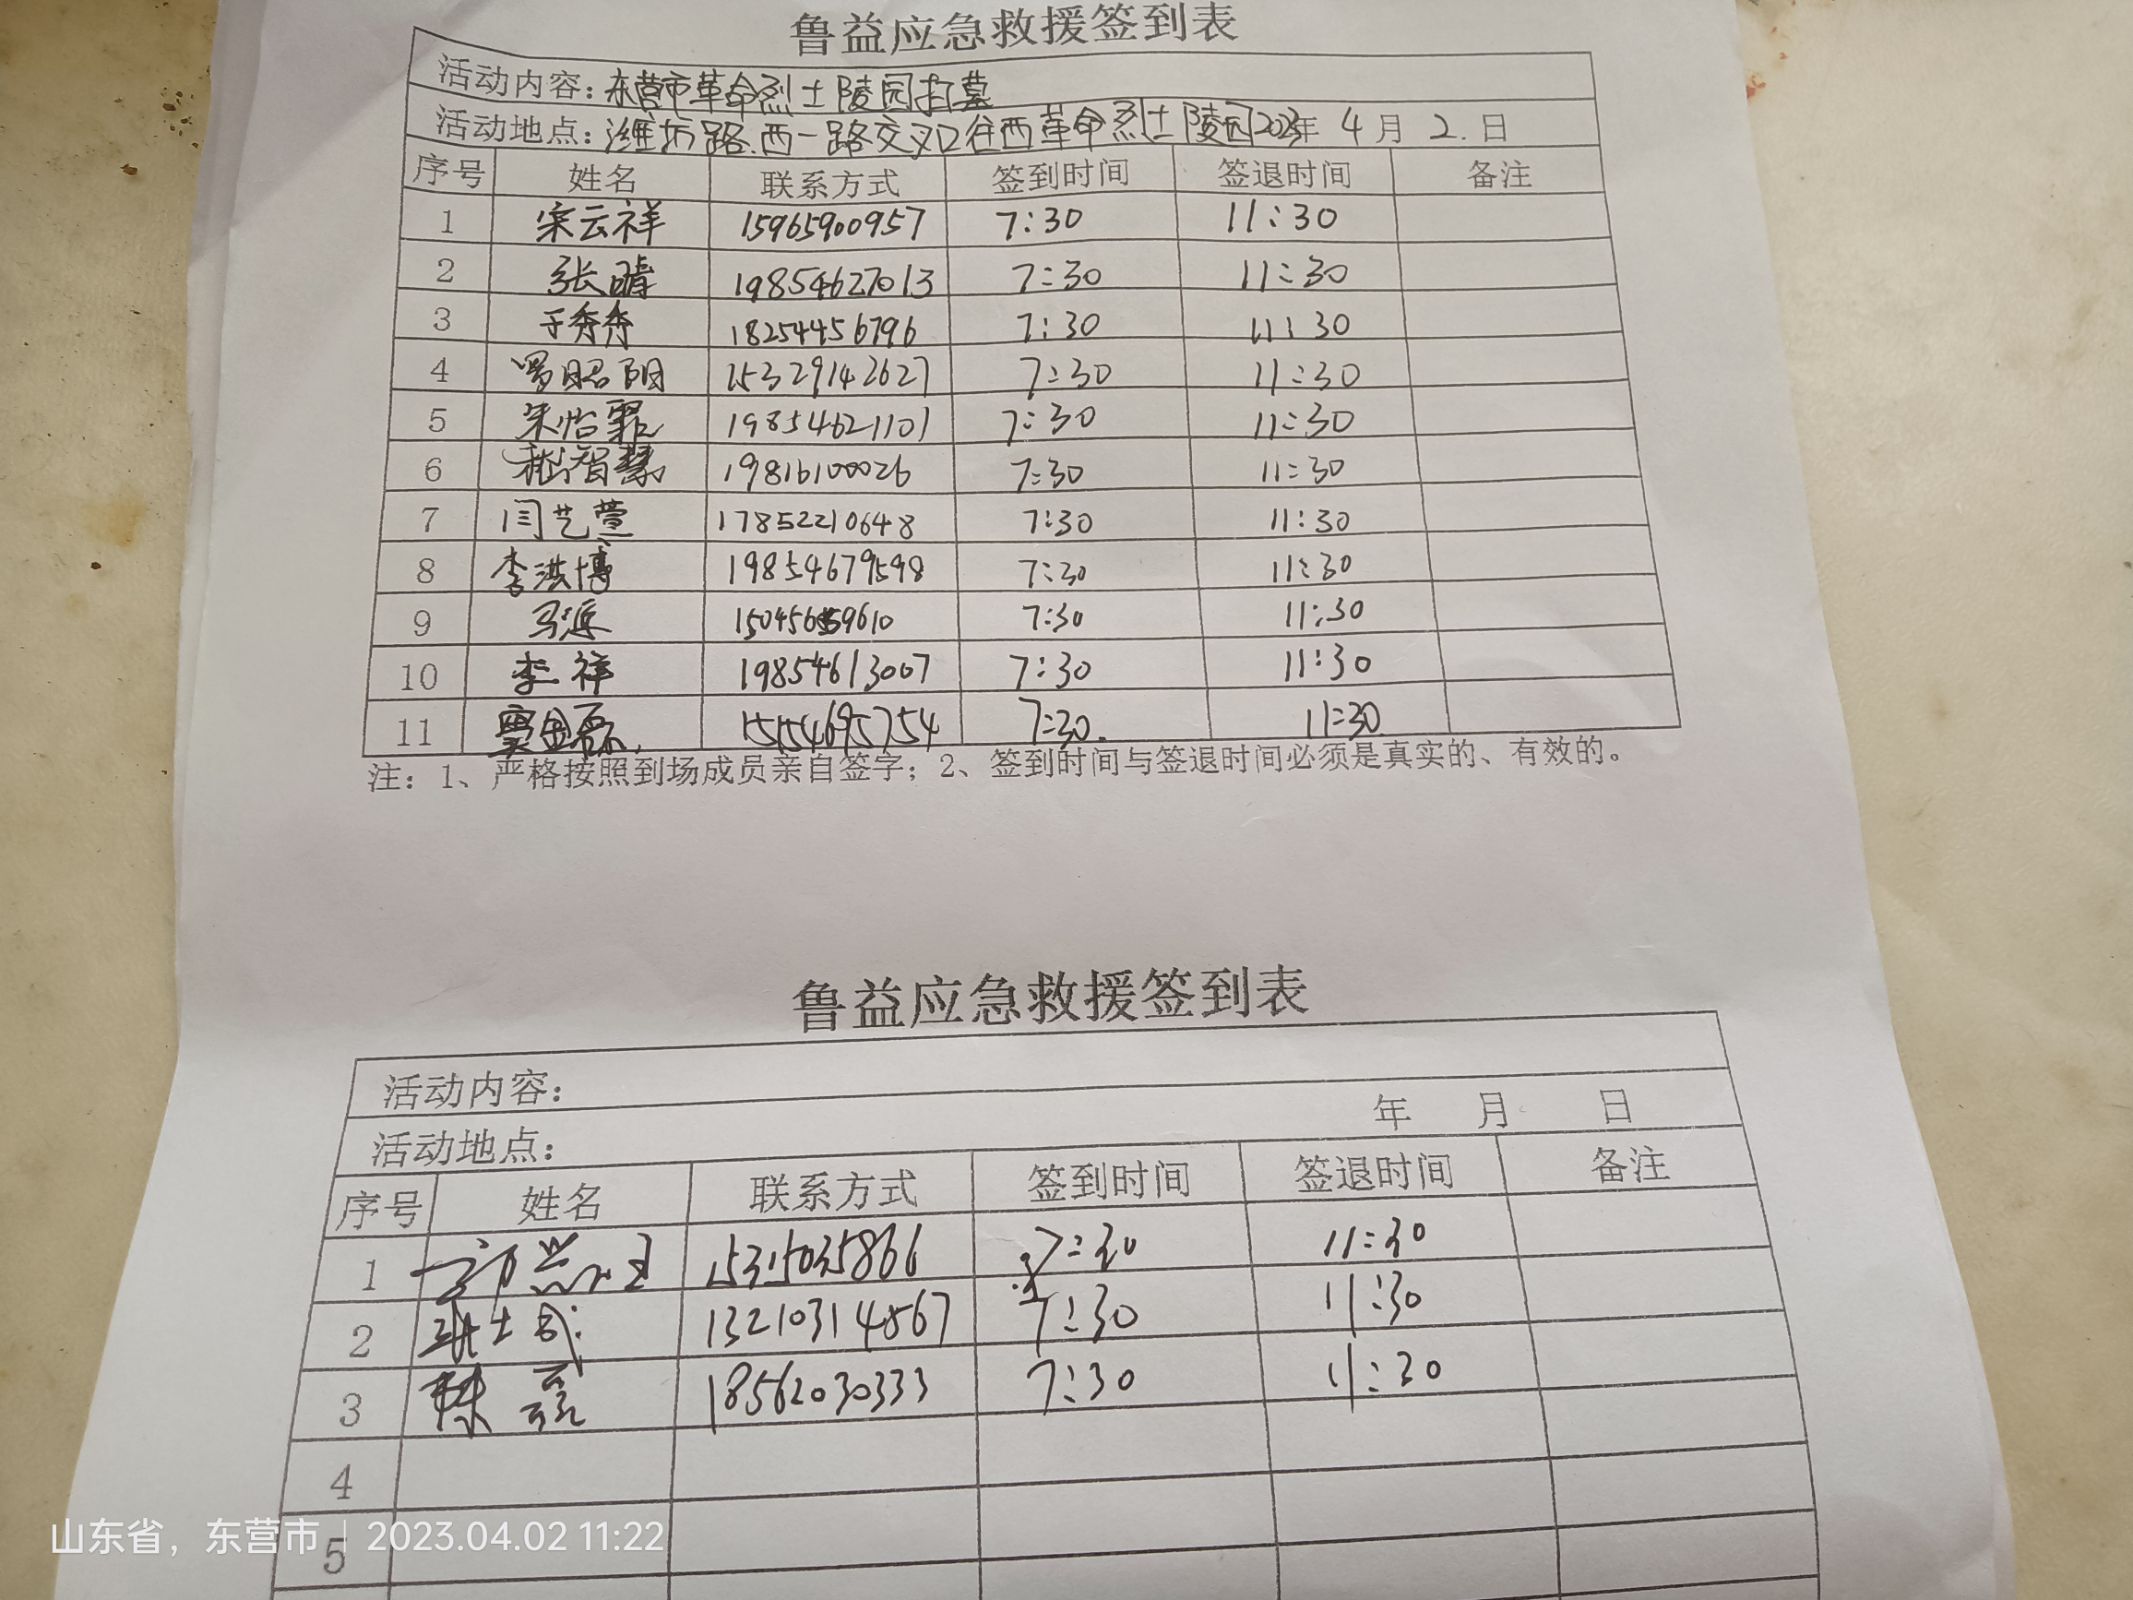 鲁益应急救援签到表
活动内容：东营市革命烈士陵园扫墓
活动地点：潍坊路.西一路交叉口往西革命烈士陵园2023年 4月 2.日
序号 姓名 联系方式 签到时间 签退时间 备注
1 宋云祥 15965900957 7:30 11:30
2 张晴 19854627013 7:30 11:30
3 于秀秀 18254456796 7:30 11:30
4 罗昭阴 15329142627 7:30 11:30
5 朱怡霏 19854621101 7:30 11:30
6 嵇智慧 19816100026 7:30 11:30
7 闫艺萱 17852210648 7:30 11:30
8 李洪博 19854679598 7:30 11:30
9 马 7:30 11:30
10 李祥 19854613007 7:30 11:30
11 15154695754 7:30. 11:30
注：1、严格按照到场成员亲自签字；2、签到时间与签退时间必须是真实的、有效的。
鲁益应急救援签到表
活动内容：
活动地点： 年 月 日
序号 姓名 联系方式 签到时间 签退时间 备注
1 15315035866 7:30 11:30
2 13210314567 7:30 11:30
3 18562030333 7:30 11:30
4
5
山东省，东营市 | 2023.04.02 11:22